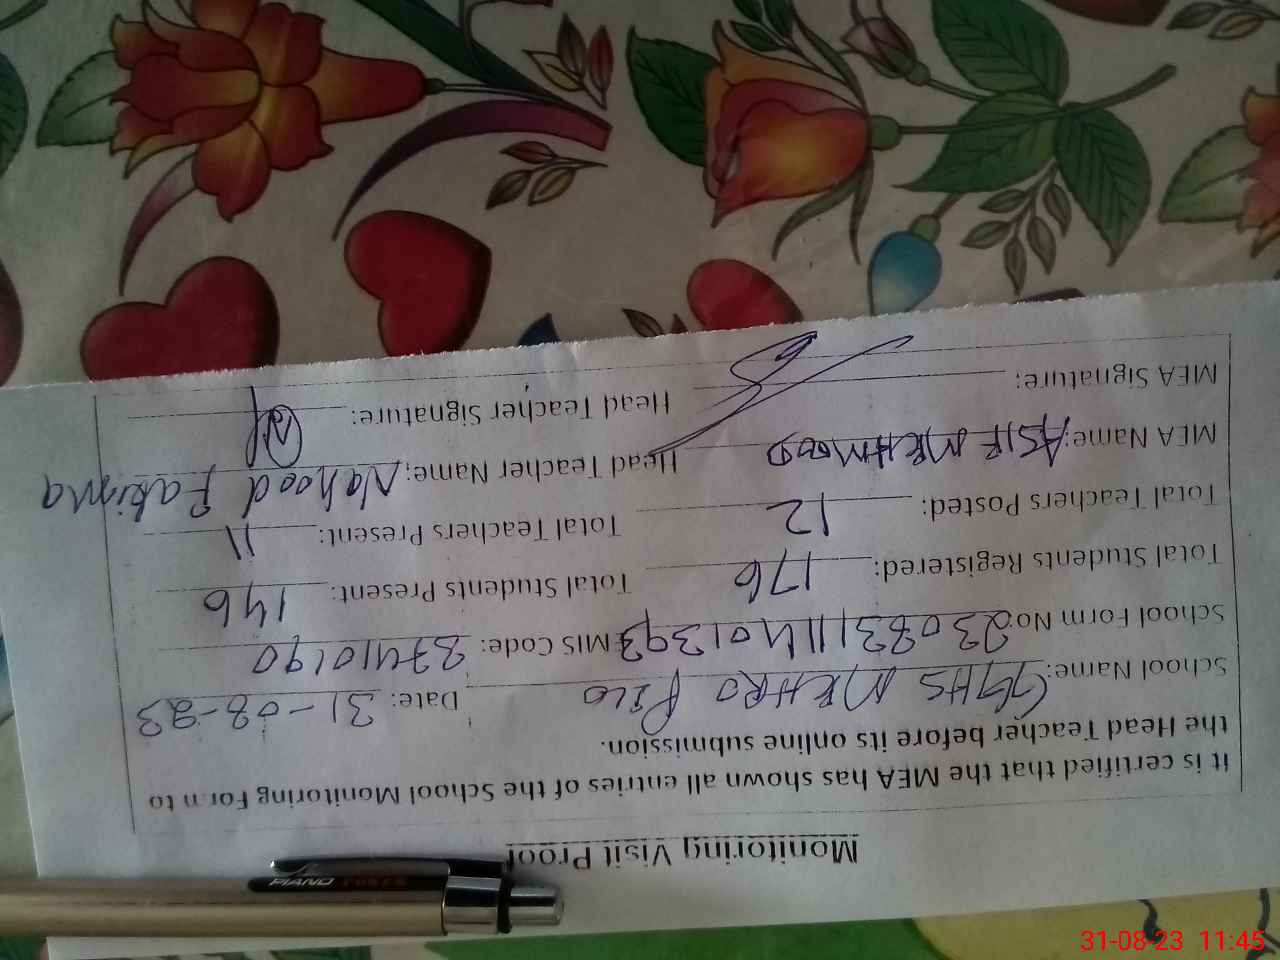 Monitoring Visit Proof
it is certified that the MEA has shown all entries of the School Monitoring Form to
the Head Teacher before its online submission.
School Name: GGHS MEHRO PELO Date: 31-08-23
School Form No: 23083111401393 EMIS Code: 37410190
Total Students Registered: 176 Total Students Present: 146
Total Teachers Posted: 12 Total Teachers Present: 11
MEA Name: ASIF MEHMOOD Head Teacher Name: Nahood Fatima
MEA Signature: Head Teacher Signature:
PIANO
31-08-23 11:45